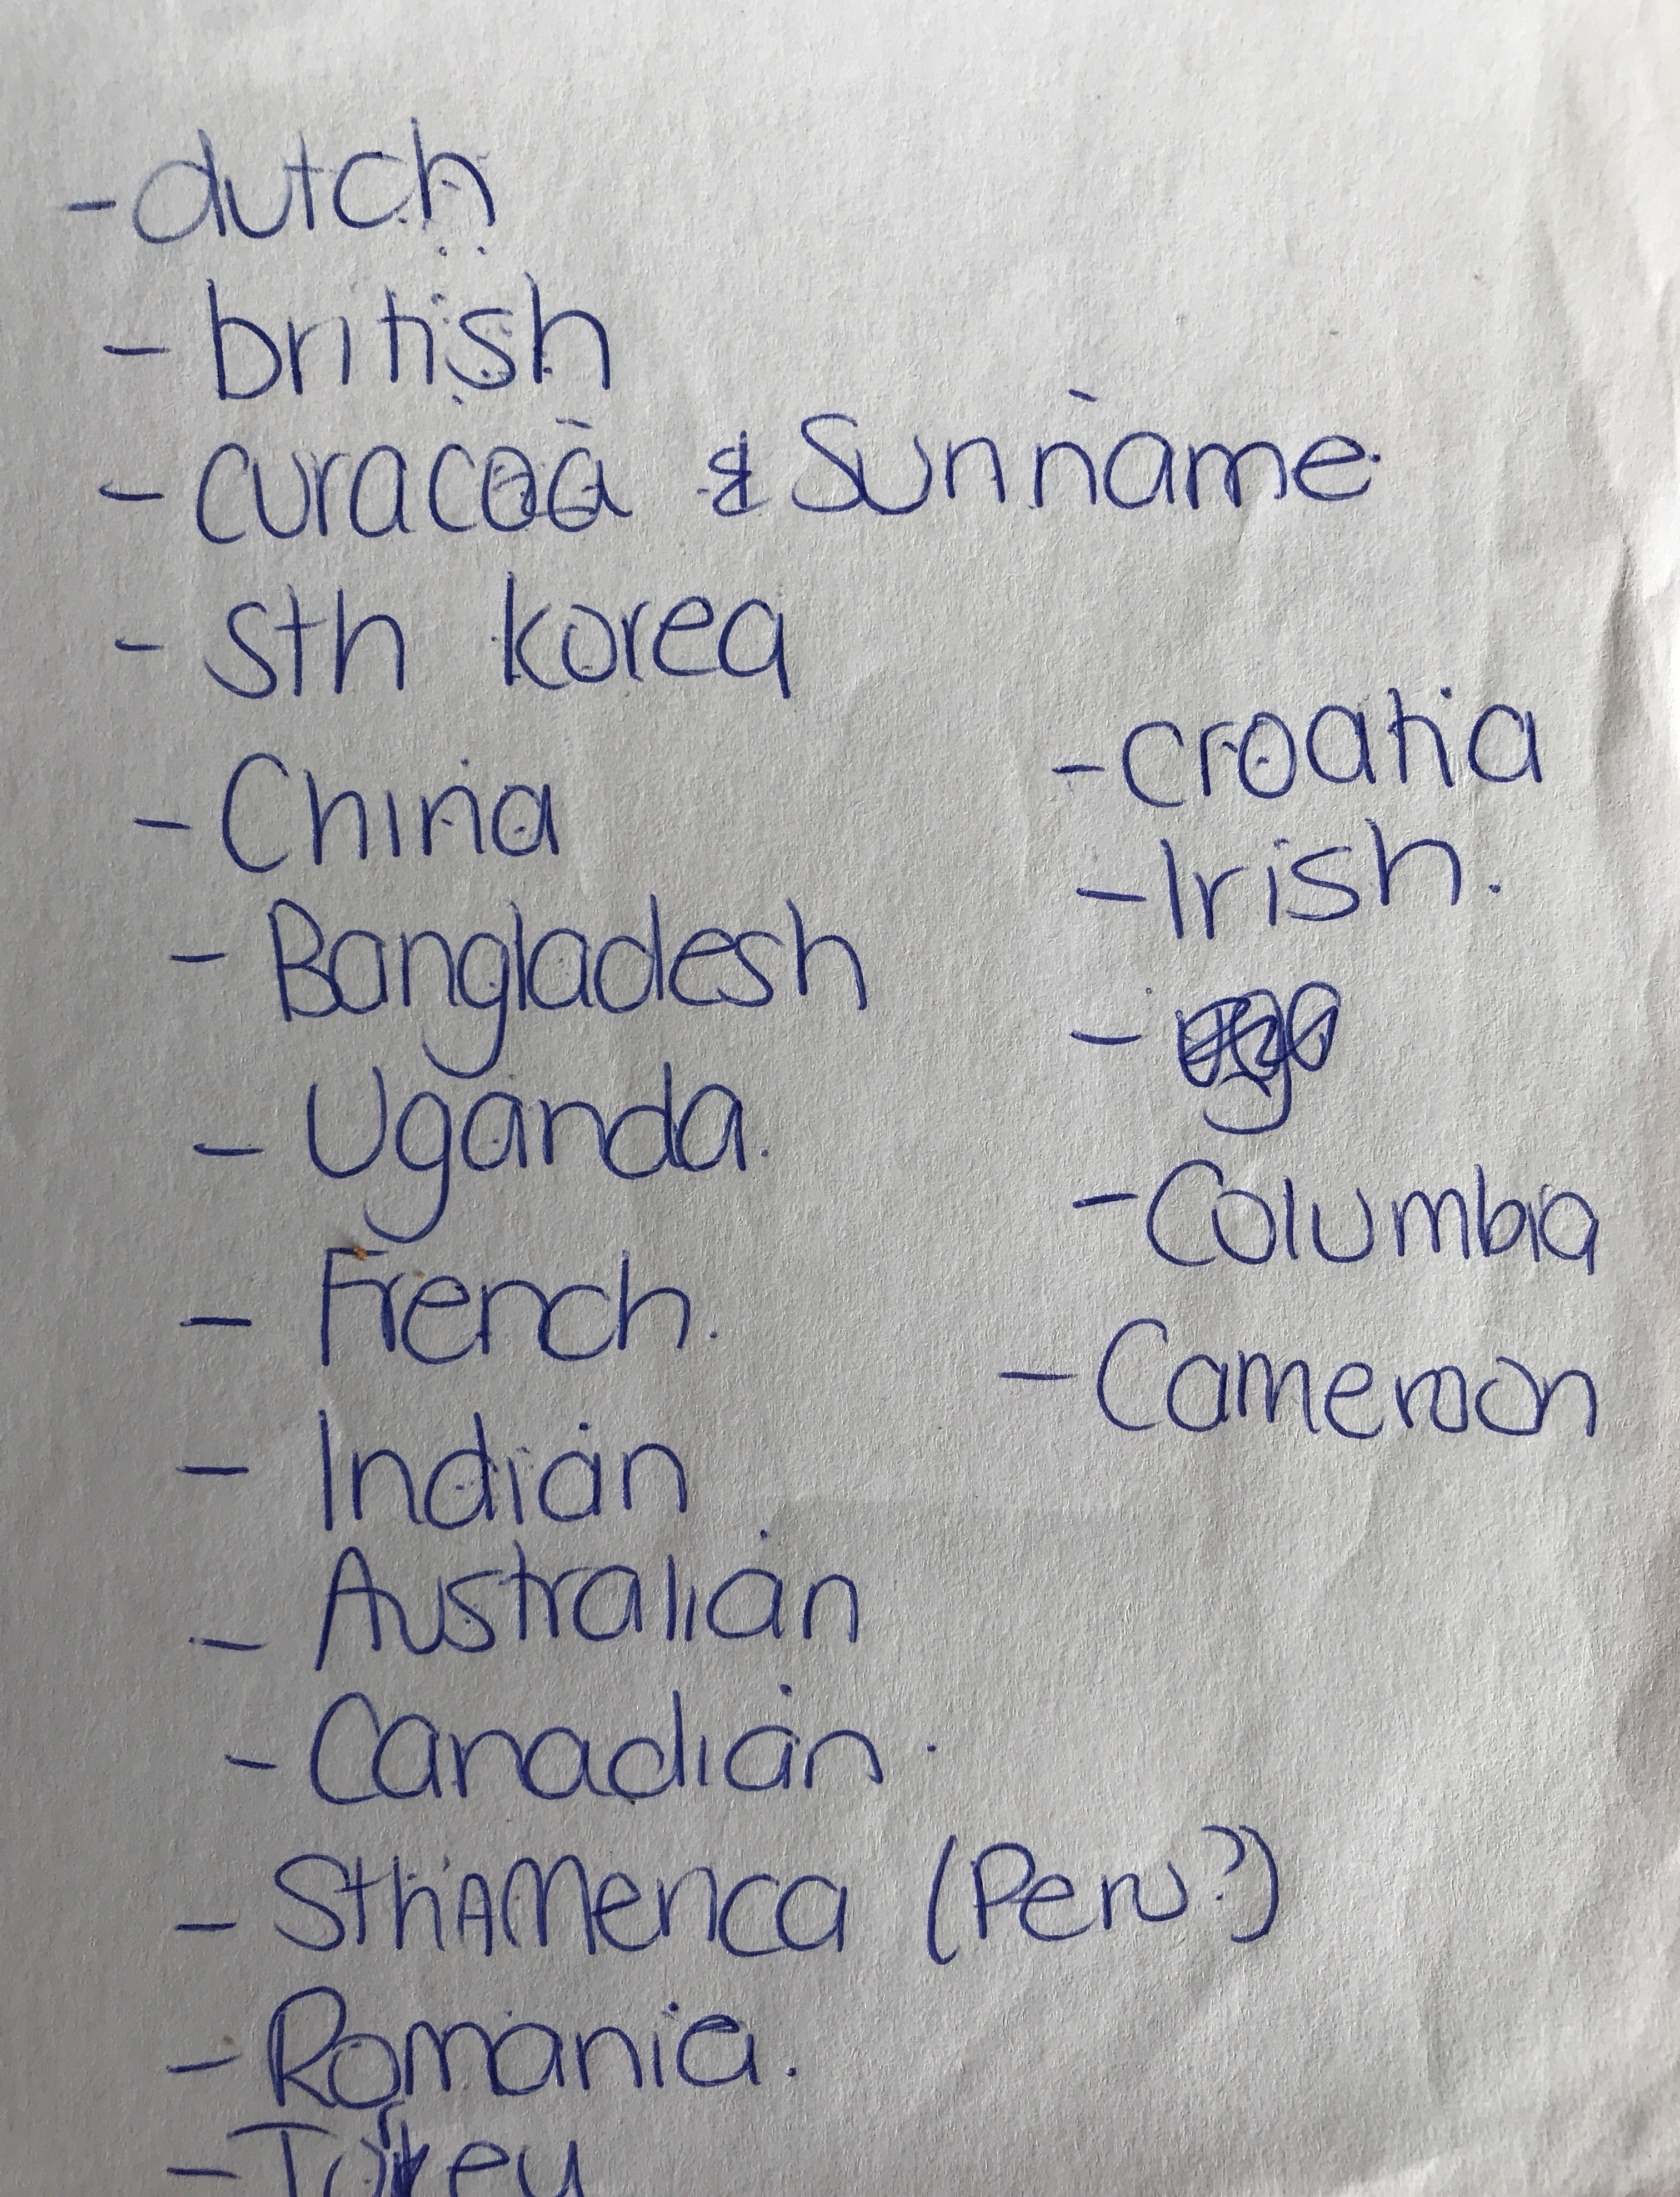 - dutch
- british
- curacoa & Suriname
- sth korea
- China
- Bangladesh
- Uganda.
- French.
- Indian
- Australian
- Canadian.
- Sth America (Peru?)
- Romania.
- Turkey
- croatia
- Irish.
-
- Columbia
- Cameroon